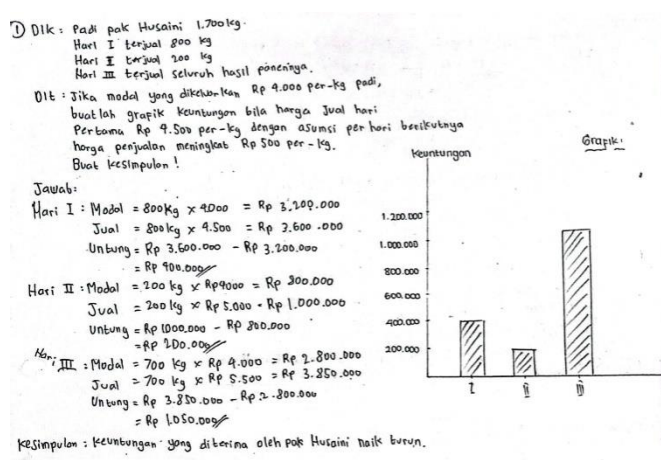 ① Dik : Padi pak Husaini 1.700 kg.
Hari I terjual 800 kg
Hari II terjual 200 kg
Hari III terjual seluruh hasil panennya.
Dit : Jika modal yang dikeluarkan Rp 4.000 per-kg padi,
buatlah grafik keuntungan bila harga jual hari
Pertama Rp 4.500 per-kg dengan asumsi per hari berikutnya
harga penjualan meningkat Rp 500 per-kg.
Buat kesimpulan !
Jawab:
Hari I : Modal = 800 kg × 4000 = Rp 3.200.000
Jual = 800 kg × 4.500 = Rp 3.600.000
Untung = Rp 3.600.000 - Rp 3.200.000
= Rp 400.000
Hari II : Modal = 200 kg × Rp4000 = Rp 800.000
Jual = 200 kg × Rp 5.000 = Rp 1.000.000
Untung = Rp 1000.000 - Rp 800.000
= Rp 200.000
Hari III : Modal = 700 kg × Rp 4.000 = Rp 2.800.000
Jual = 700 kg × Rp 5.500 = Rp 3.850.000
Untung = Rp 3.850.000 - Rp 2.800.000
= Rp 1.050.000
Kesimpulan : Keuntungan yang diterima oleh pak Husaini naik turun.
Grafik:
Keuntungan
1.200.000
1.000.000
800.000
600.000
400.000
200.000
I II III